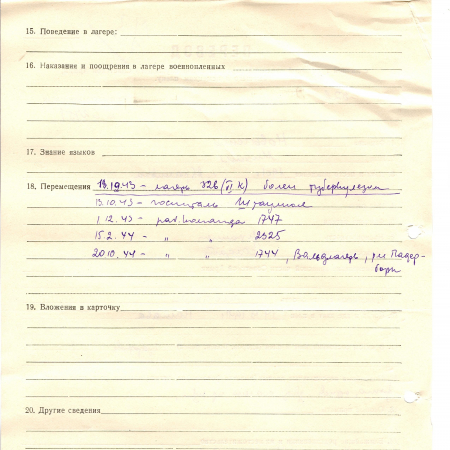 15. Поведение в лагере:
16. Наказания и поощрения в лагере военнопленных
17. Знание языков
18. Перемещения 13.10.43 – лагерь 326 (VI К) болен туберкулезом
13.10.43 – госпиталь Штаумюле
1.12.43 – раб. команда 1747
15.2.44 – " " 2525
20.10.44 – " " 1744, Вальдлагерь, р-н Падер-
борн
19. Вложения в карточку
20. Другие сведения